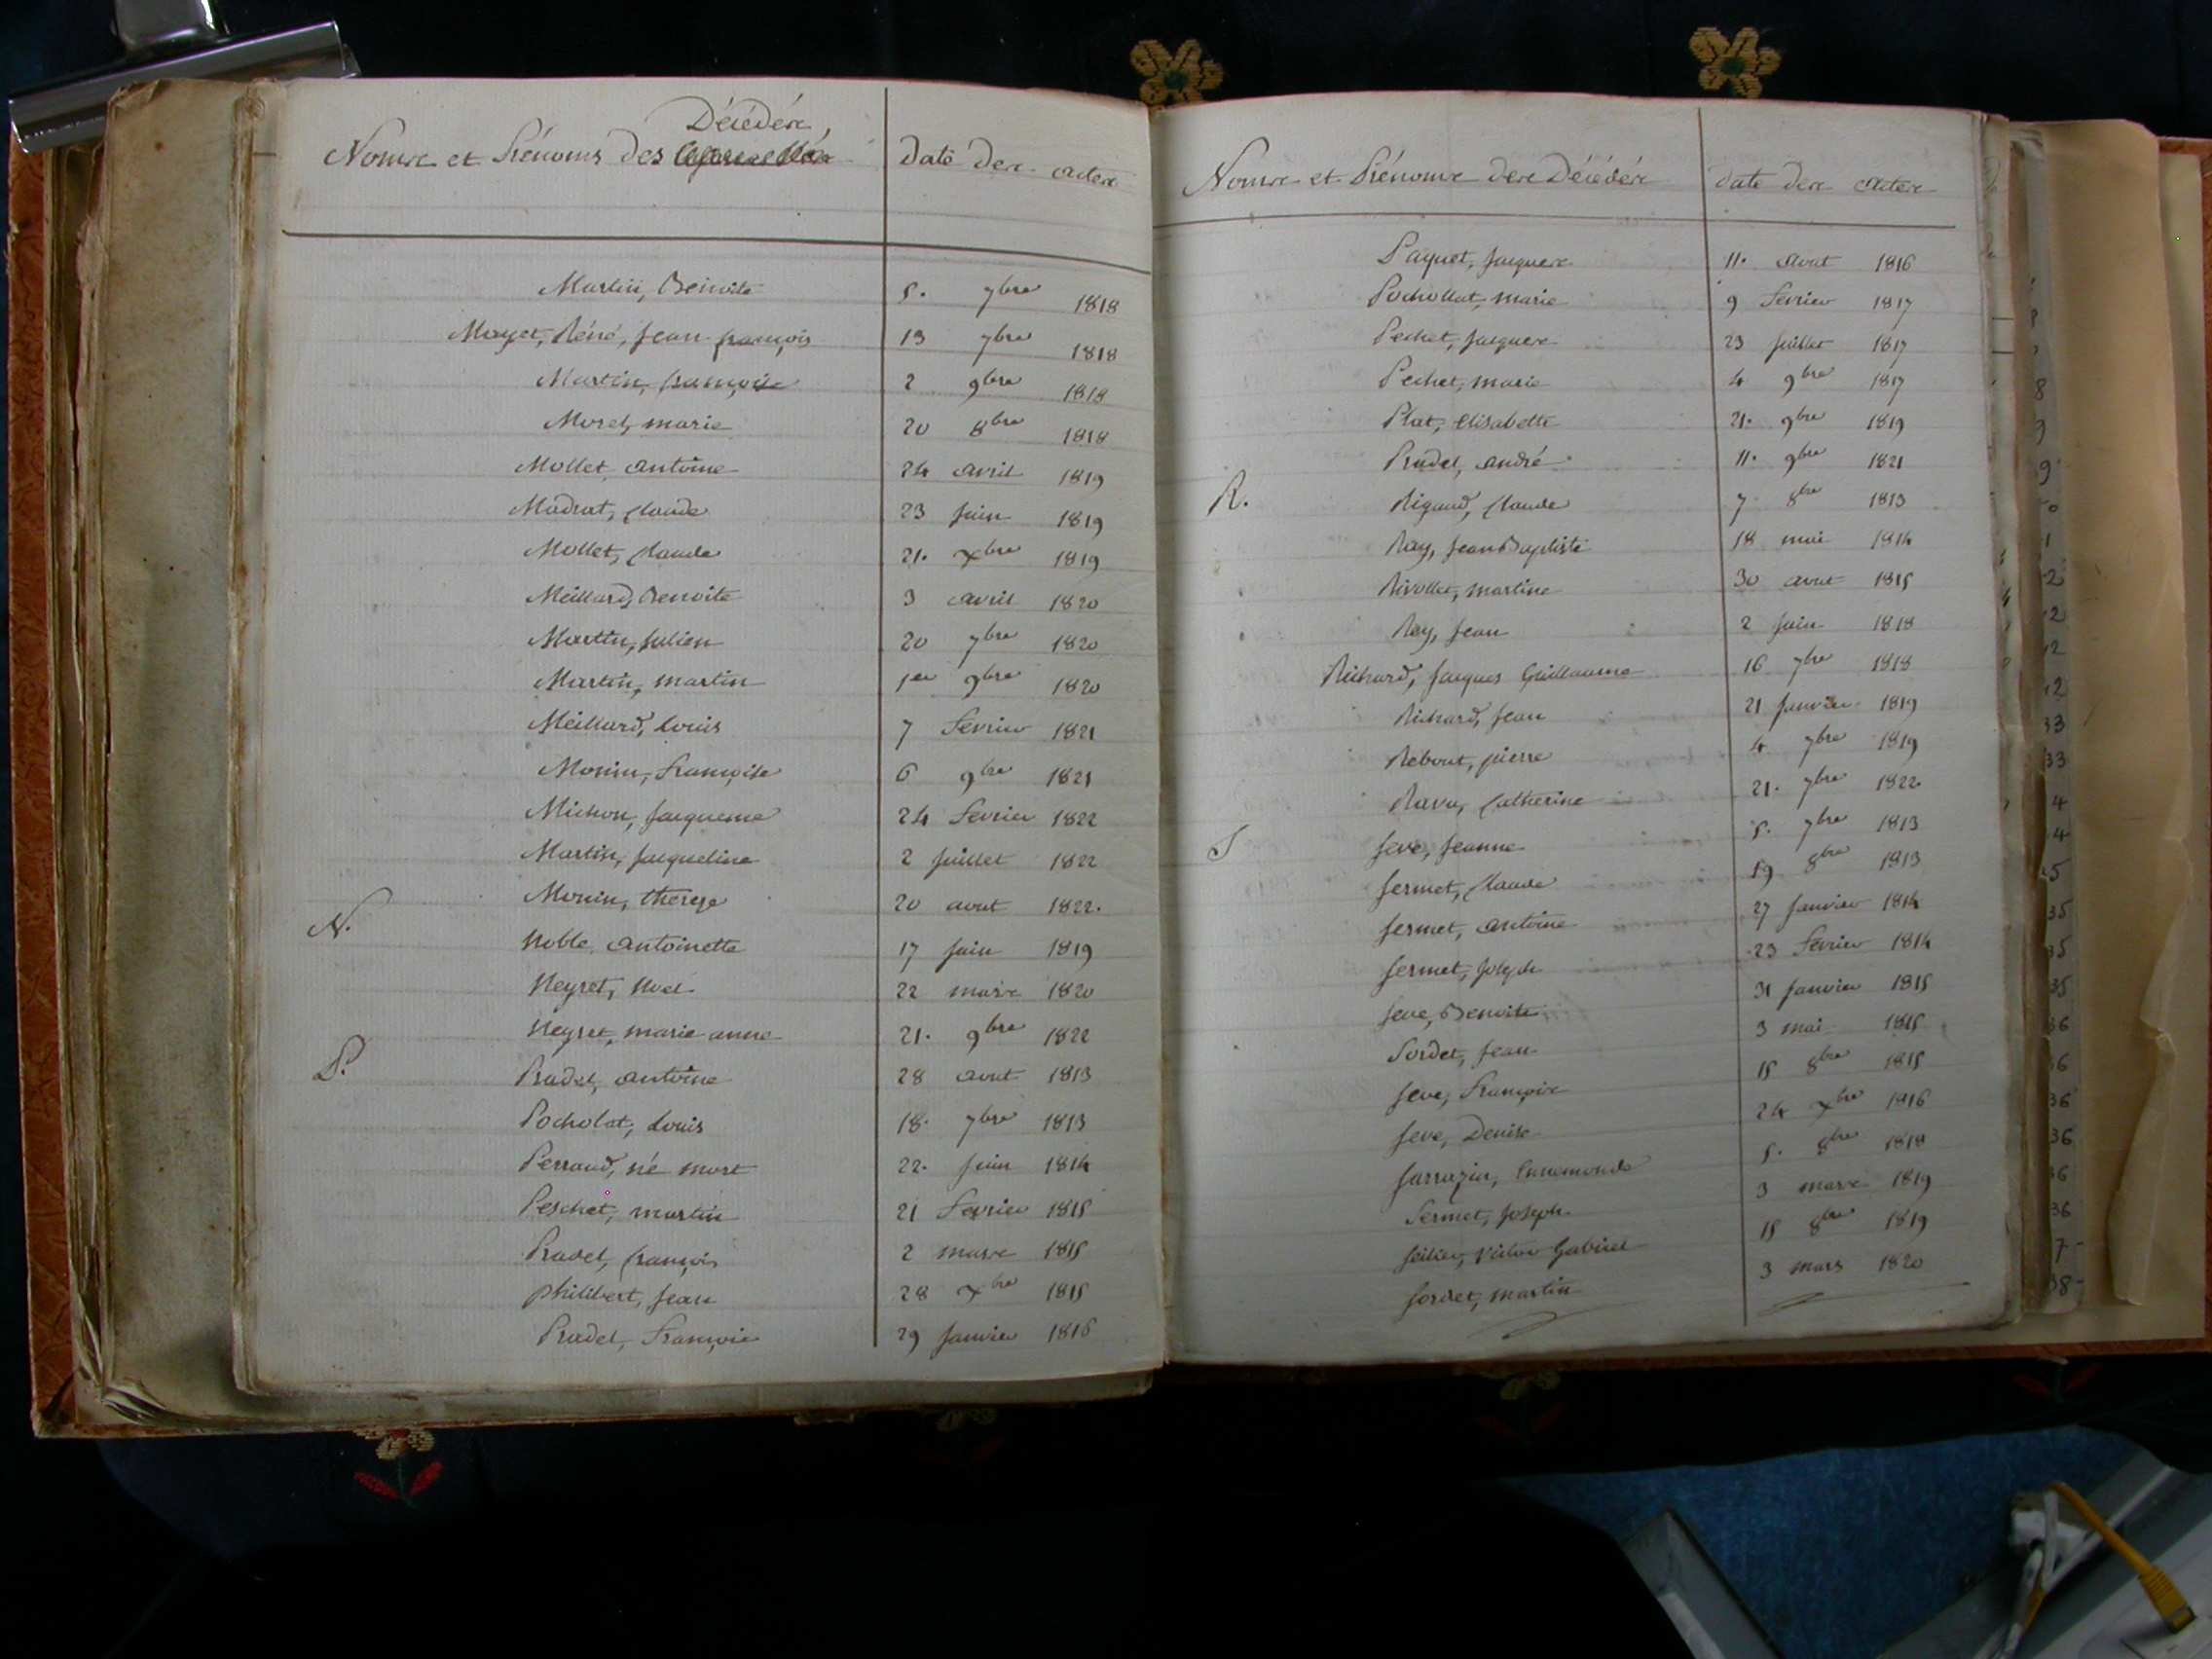 Décédés
Noms et Prénoms des date des actes
Martin, Benoite 5. 7bre 1818
Mayet, Réné, Jean françois 13 7bre 1818
Martin, françoise 2 9bre 1818
Morel, marie 20 8bre 1818
Mollet, antoine 24 avril 1819
Madrat, Claude 23 Juin 1819
Mollet, Claude 21. Xbre 1819
Meillard, Benoite 3 avril 1820
Martin, Julien 20 7bre 1820
Martin, martin 1er 9bre 1820
Meillard, Louis 7 Fevrier 1821
Monin, Françoise 6 9bre 1821
Michon, Jacqueme 24 Fevrier 1822
Martin, Jacqueline 2 Juillet 1822
Monin, therese 20 aout 1822.
N.
Noble, antoinette 17 Juin 1819
Neyret, Noel 22 mars 1820
Neyret, marie anne 21. 9bre 1822
P.
Pradel, antoine 28 aout 1813
Pocholat, Louis 18. 7bre 1813
Perraud, né mort 22. Juin 1814
Peschet, martin 21 Fevrier 1815
Pradel, françois 2 mars 1815
philibert, Jean 28 Xbre 1815
Pradel, François 29 Janvier 1816
Noms et Prénoms des Décédés date des actes
Paquet, Jacques 11. Aout 1816
Pochollat, marie 9 Fevrier 1817
Pechet, Jacques 23 Juillet 1817
Pechet, marie 4 9bre 1817
Plat, Elisabette 21. 9bre 1819
Pradel, andré 11. 9bre 1821
R. Rigaud, Claude 7 8bre 1813
Ray, Jean Baptiste 18 mai 1814
Rivollet, martine 30 aout 1815
Rey, Jean 2 Juin 1818
Richard, Jacques Guillaume 16 7bre 1818
Richard, Jean 21 Janvier 1819
Rebout, pierre 4 7bre 1819
Catherine 21. 7bre 1822
S Seve, Jeanne 5. 7bre 1813
Sermet, Claude 19 8bre 1813
Sermet, antoine 27 Janvier 1814
Sermet, Joseph 23 Fevrier 1814
Seve, Benoite 31 Janvier 1815
Sordet, Jean 3 mai 1815
Seve, François 15 8bre 1815
Seve, Denise 24 Xbre 1816
Sarrazin, Ennemonde 5. 8bre 1818
Sermet, Joseph 3 mars 1819
Victor Gabriel 15 8bre 1819
Sordet, martin 3 mars 1820